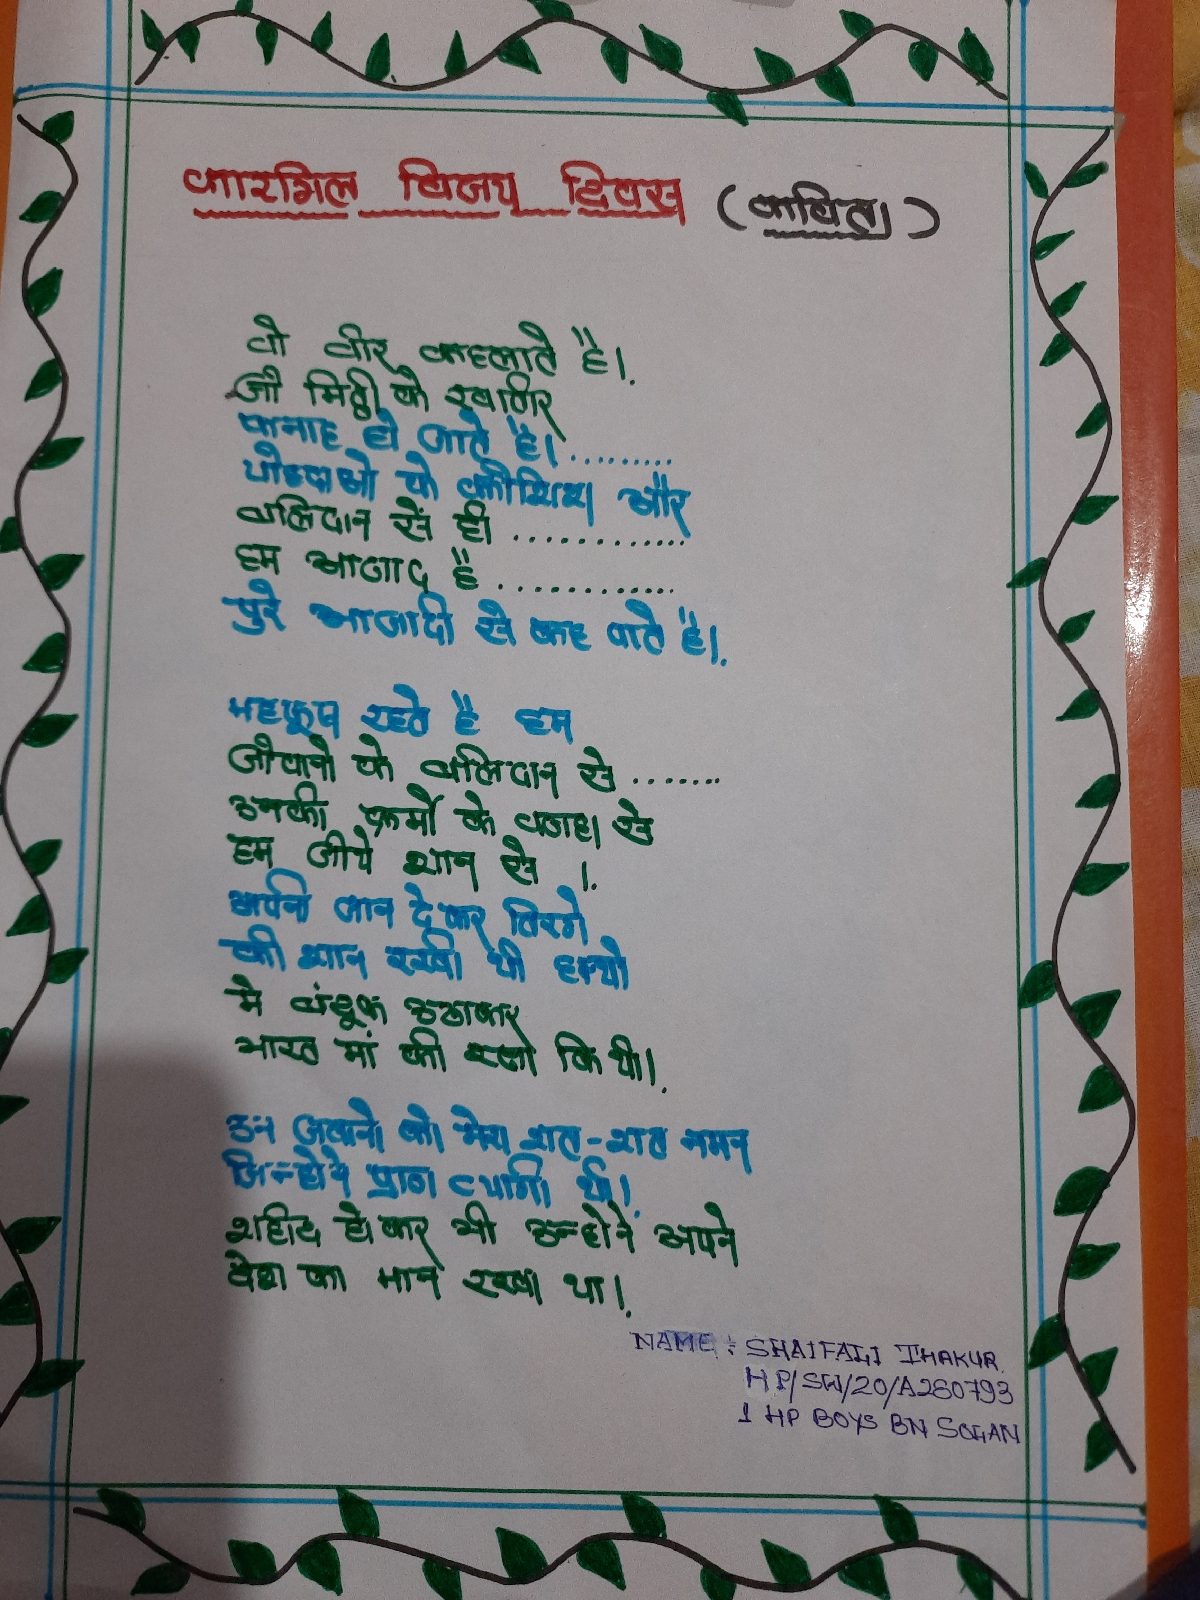 कारगिल विजय दिवस (कविता)
वो वीर कहलाते है।
जो मिट्टी के खातिर
फनाह हो जाते है। .........
योद्धाओ के कोशिश और
बलिदान से ही ............
हम आजाद है ............
पुरे आजादी से कह पाते है।
महफूज रहते है हम
जीवानो के बलिदान से .......
उनकी कर्मो के वजह से
हम जीये शान से ।
अपनी जान देकर तिरंगे
की शान रखी थी हाथो
मे बंदूक उठाकर
भारत मां की रक्षा कि थी।
उन जवानो को मेरा शत-शत नमन
जिन्होने प्राण त्यागे थे।
शहीद होकर भी उन्होने अपने
देश का मान रखा था।
NAME : SHAIFALI THAKUR
HP/SW/20/A280793
1 HP BOYS BN SOLAN